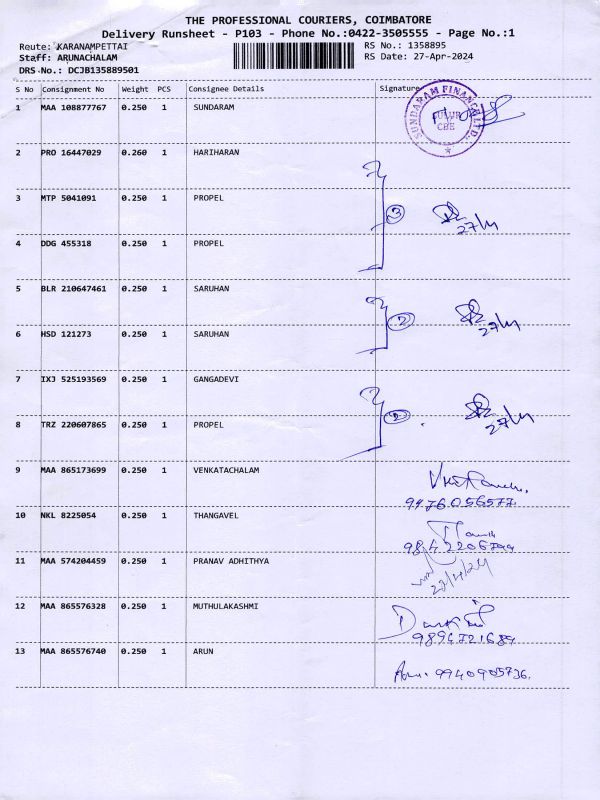 THE PROFESSIONAL COURIERS, COIMBATORE
Delivery Runsheet - P103 - Phone No.:0422-3505555 - Page No.:1
Route: KARANAMPETTAI
RS No.: 1358895
Staff: ARUNACHALAM
RS Date: 27-Apr-2024
DRS No.: DCJB135889501
S No Consignment No Weight PCS Consignee Details Signature
1 MAA 108877767 0.250 1 SUNDARAM
SUNDARAM FINANCE LTD.,
SULUR
CBE
2 PRO 16447029 0.260 1 HARIHARAN
3 MTP 5041091 0.250 1 PROPEL 3
27/4
4 DDG 455318 0.250 1 PROPEL
5 BLR 210647461 0.250 1 SARUHAN
2
27/4
6 HSD 121273 0.250 1 SARUHAN
7 IXJ 525193569 0.250 1 GANGADEVI
2
27/4
8 TRZ 220607865 0.250 1 PROPEL
9 MAA 865173699 0.250 1 VENKATACHALAM
9476056577
10 NKL 8225054 0.250 1 THANGAVEL
11 MAA 574204459 0.250 1 PRANAV ADHITHYA
12 MAA 865576328 0.250 1 MUTHULAKASHMI
9894721689
13 MAA 865576740 0.250 1 ARUN
Arun. 9940905736.